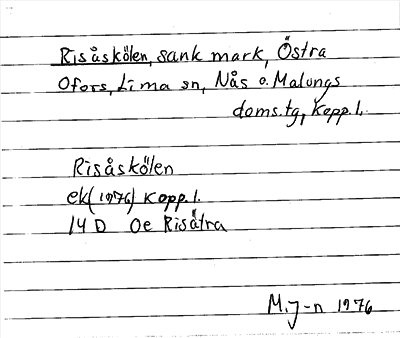 Risåskölen, sank mark, Östra
Ofors, Lima sn, Nås o. Malungs
doms.tg, Kopp.l.
Risåskölen
ek (1976) Kopp.l.
14 D Oe Risåtra
M.J-n 1976